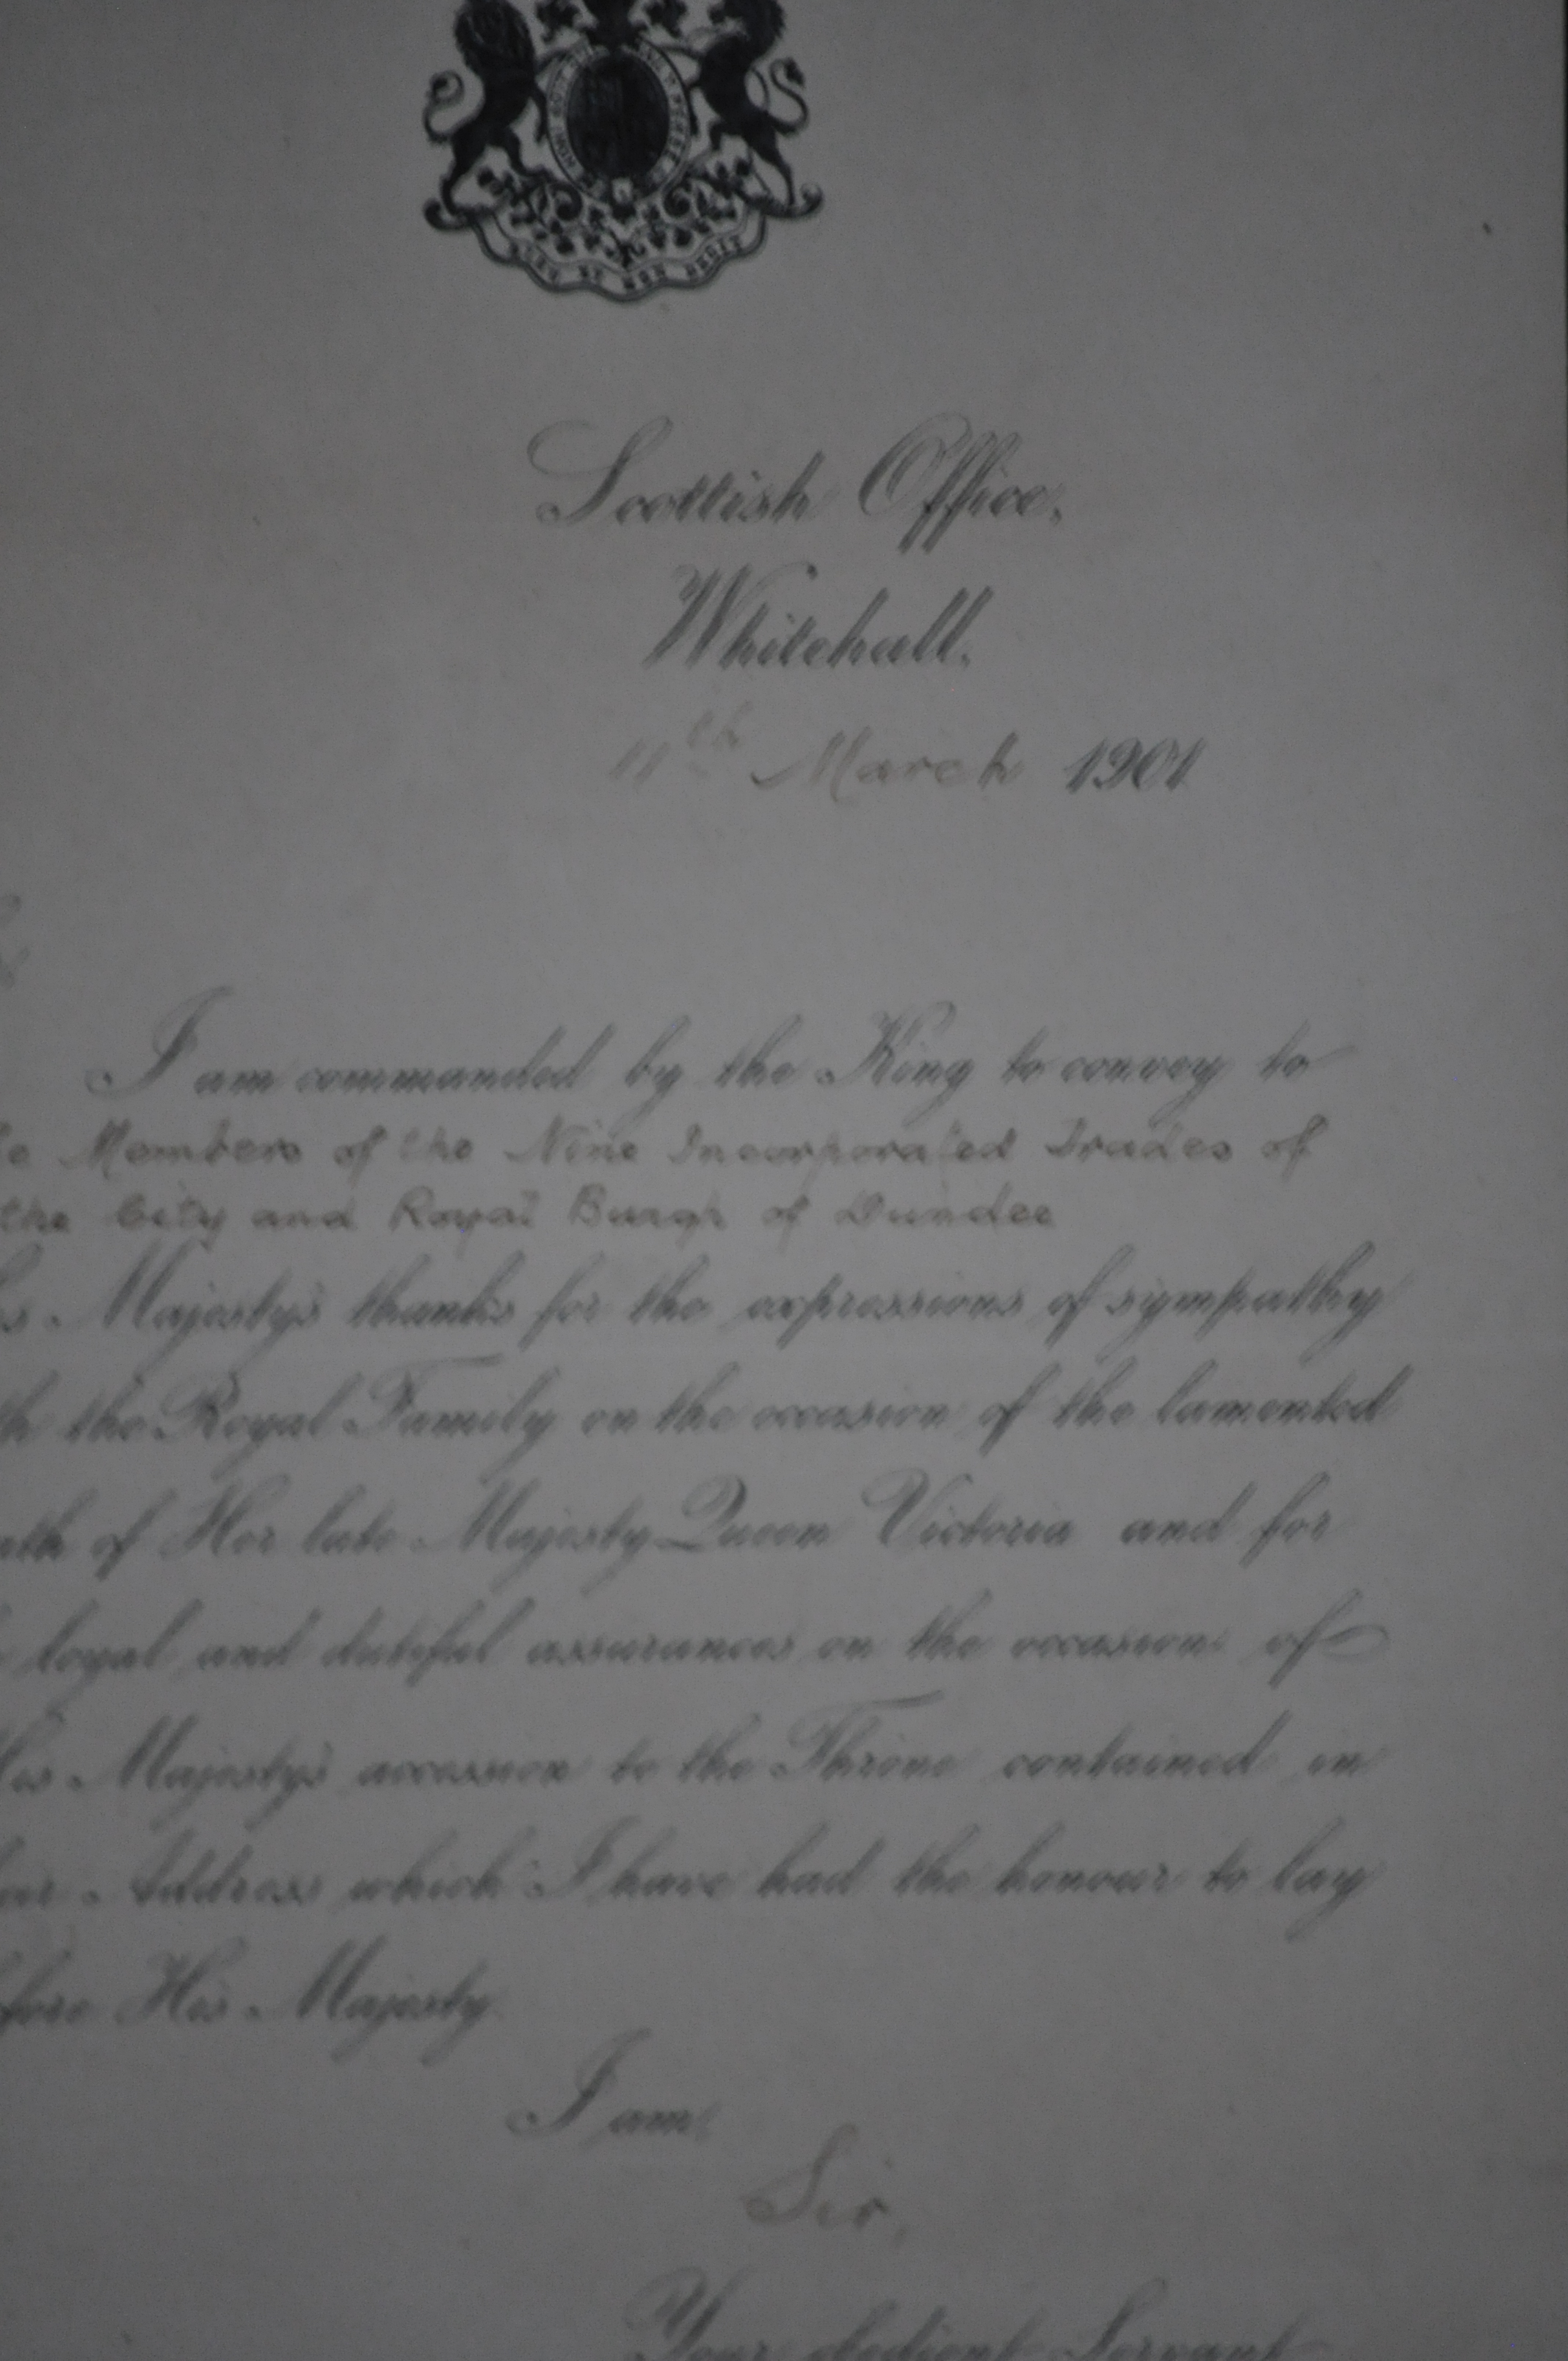 HONI SOIT QUI MAL Y PENSE
DIEU ET MON DROIT
Scottish Office,
Whitehall.
11th March 1901
I am commanded by the King to convey to
Members of the Nine Incorporated Trades of
the City and Royal Burgh of Dundee
Majesty's thanks for the expressions of sympathy
the Royal Family on the occasion of the lamented
of Her late Majesty Queen Victoria and for
loyal and dutiful assurances on the occasion of
His Majesty's accession to the Throne contained in
Address which I have had the honour to lay
His Majesty.
I am,
Sir,
Your obedient Servant